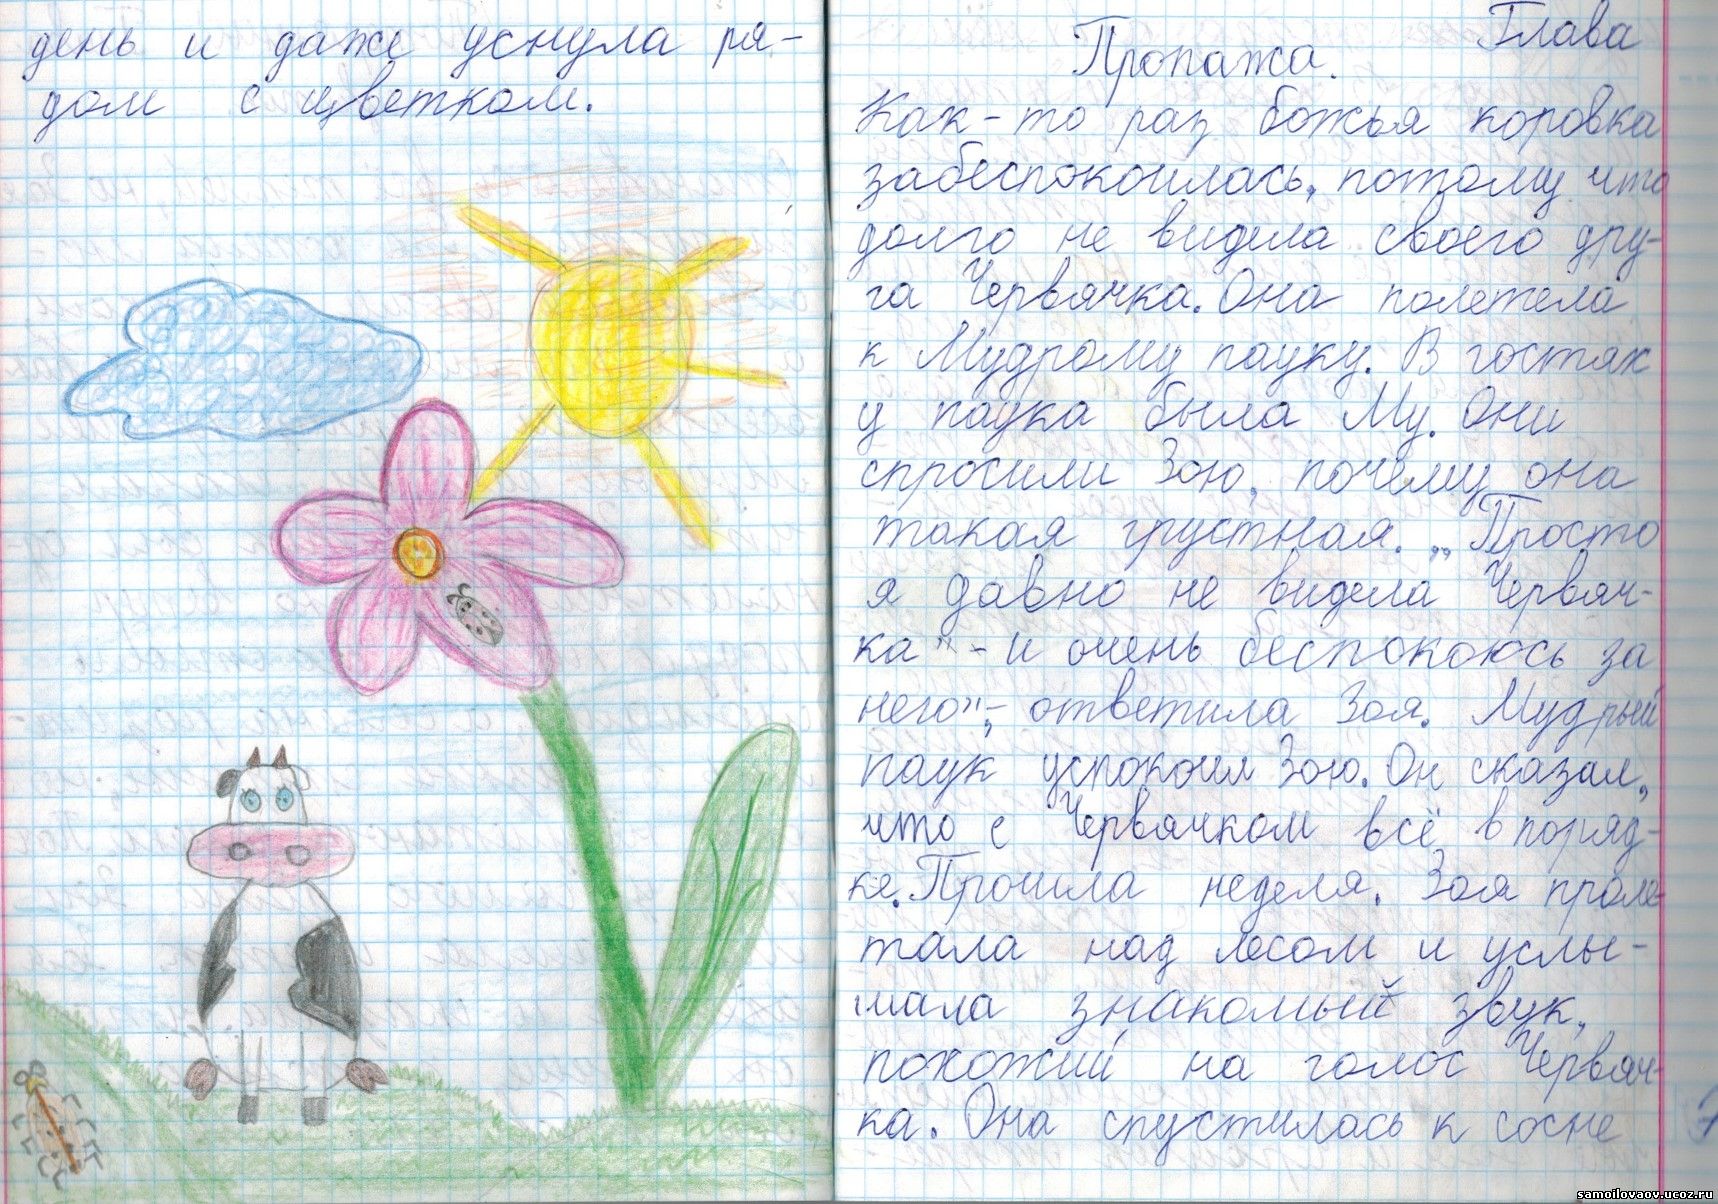 день и даже уснула ря-
дом с цветком.
Глава
Пропажа.
Как-то раз божья коровка
забеспокоилась, потому что
долго не видела своего дру-
га Червячка. Она полетела
к Мудрому пауку. В гостях
у паука была Му. Они
спросили Зою, почему она
такая грустная. „Просто
я давно не видела Червяч-
ка" - и очень беспокоюсь за
него",- ответила Зоя. Мудрый
паук успокоил Зою. Он сказал,
что с Червячком всё в поряд-
ке. Прошла неделя. Зоя проле-
тала над лесом и услы-
шала знакомый звук,
похожий на голос Червяч-
ка. Она спустилась к сосне
7
samoilovaov.ucoz.ru